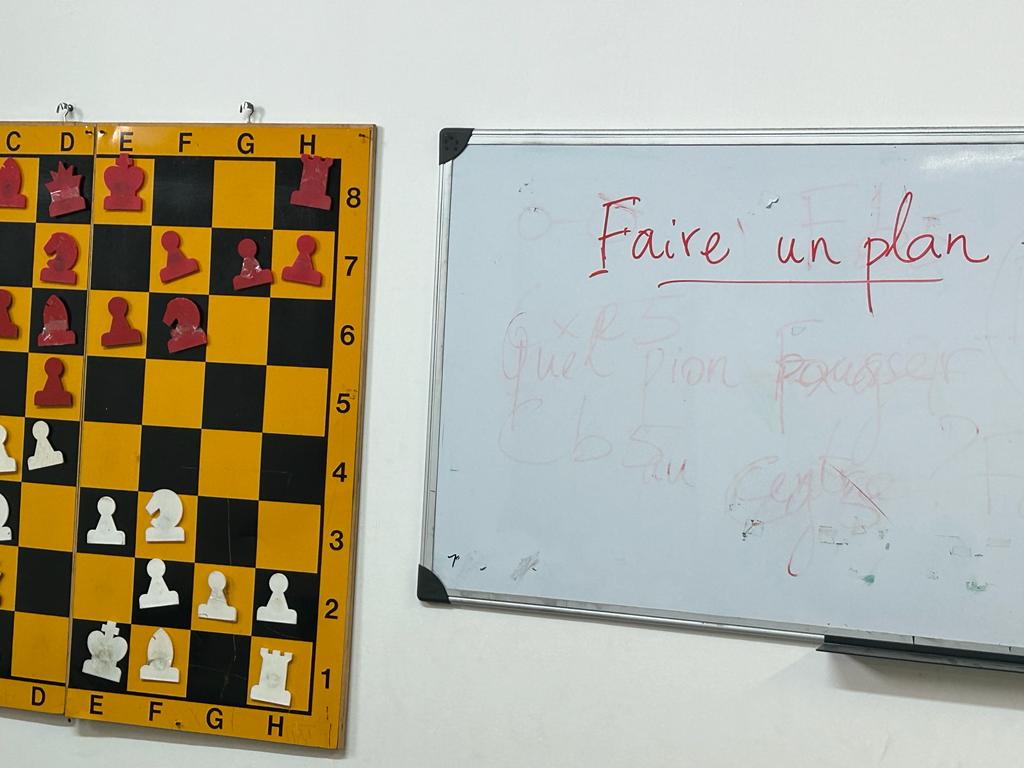 C D E F G H
8
7
6
5
4
3
2
1
D E F G H
Faire un plan
Quel pion pousser
au centre ?